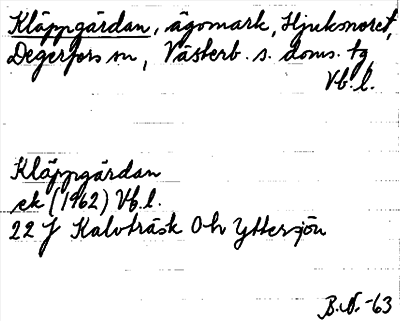 Kläppgärdan, ägomark, Hjuksnoret,
Degerfors sn, Västerb. s. doms. tg
Vb. l.
Kläppgärdan
ek (1962) Vb. l.
22 J Kalvträsk 0h Yttersjön
B.N. -63